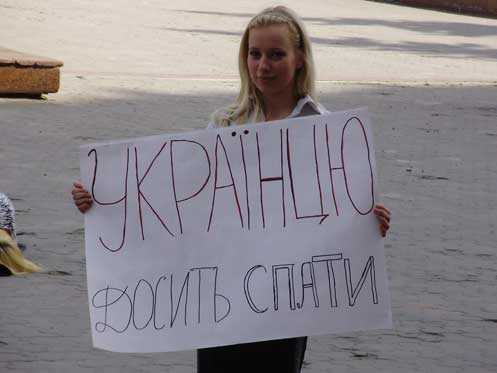 УКРАЇНЦЮ
ДОСИТЬ СПАТИ